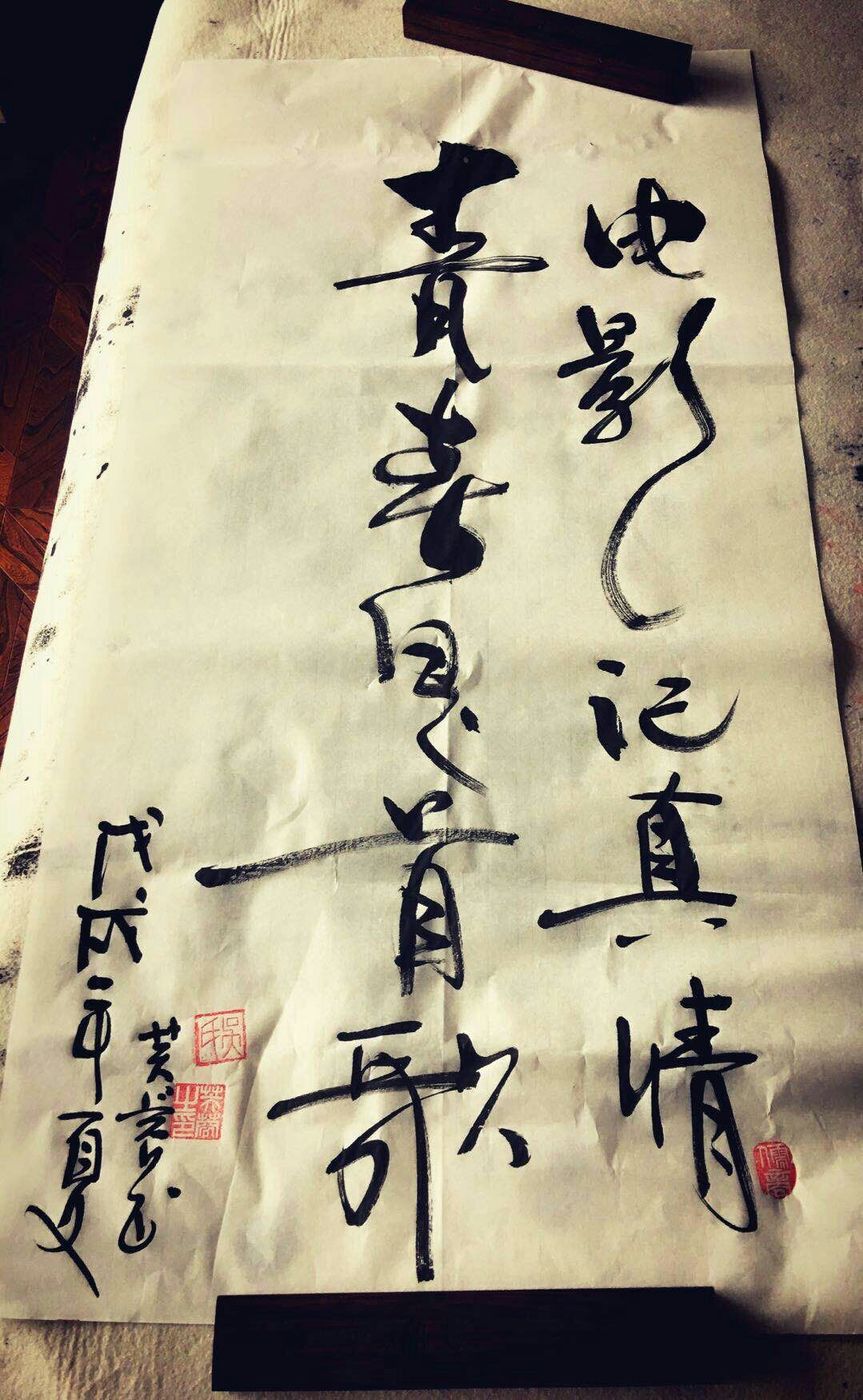 电影记真情
青春是首歌
戊戌年夏